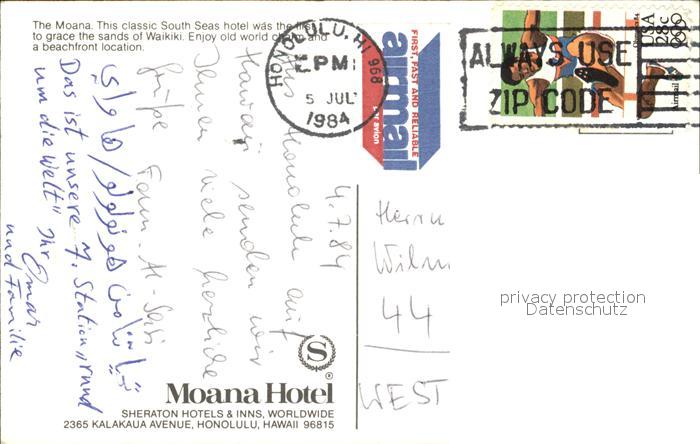 The Moana. This classic South Seas hotel was the first
to grace the sands of Waikiki. Enjoy old world charm and
a beachfront location.
HONOLULU, HI 968
PM
5 JUL
1984
FIRST, FAST AND RELIABLE
airmail
par avion
ALWAYS USE
ZIP CODE
USA
28c
Airmail
4.7.84
Aus Honolulu auf
Hawaii senden wir
Ihnen viele herzliche
Grüße
Fam. Al-Saisi
Das ist unsere 7. Station "rund
um die Welt" Ihr Omar
und Familie
Herrn
44
WEST
privacy protection
Datenschutz
S
Moana Hotel
SHERATON HOTELS & INNS, WORLDWIDE
2365 KALAKAUA AVENUE, HONOLULU, HAWAII 96815